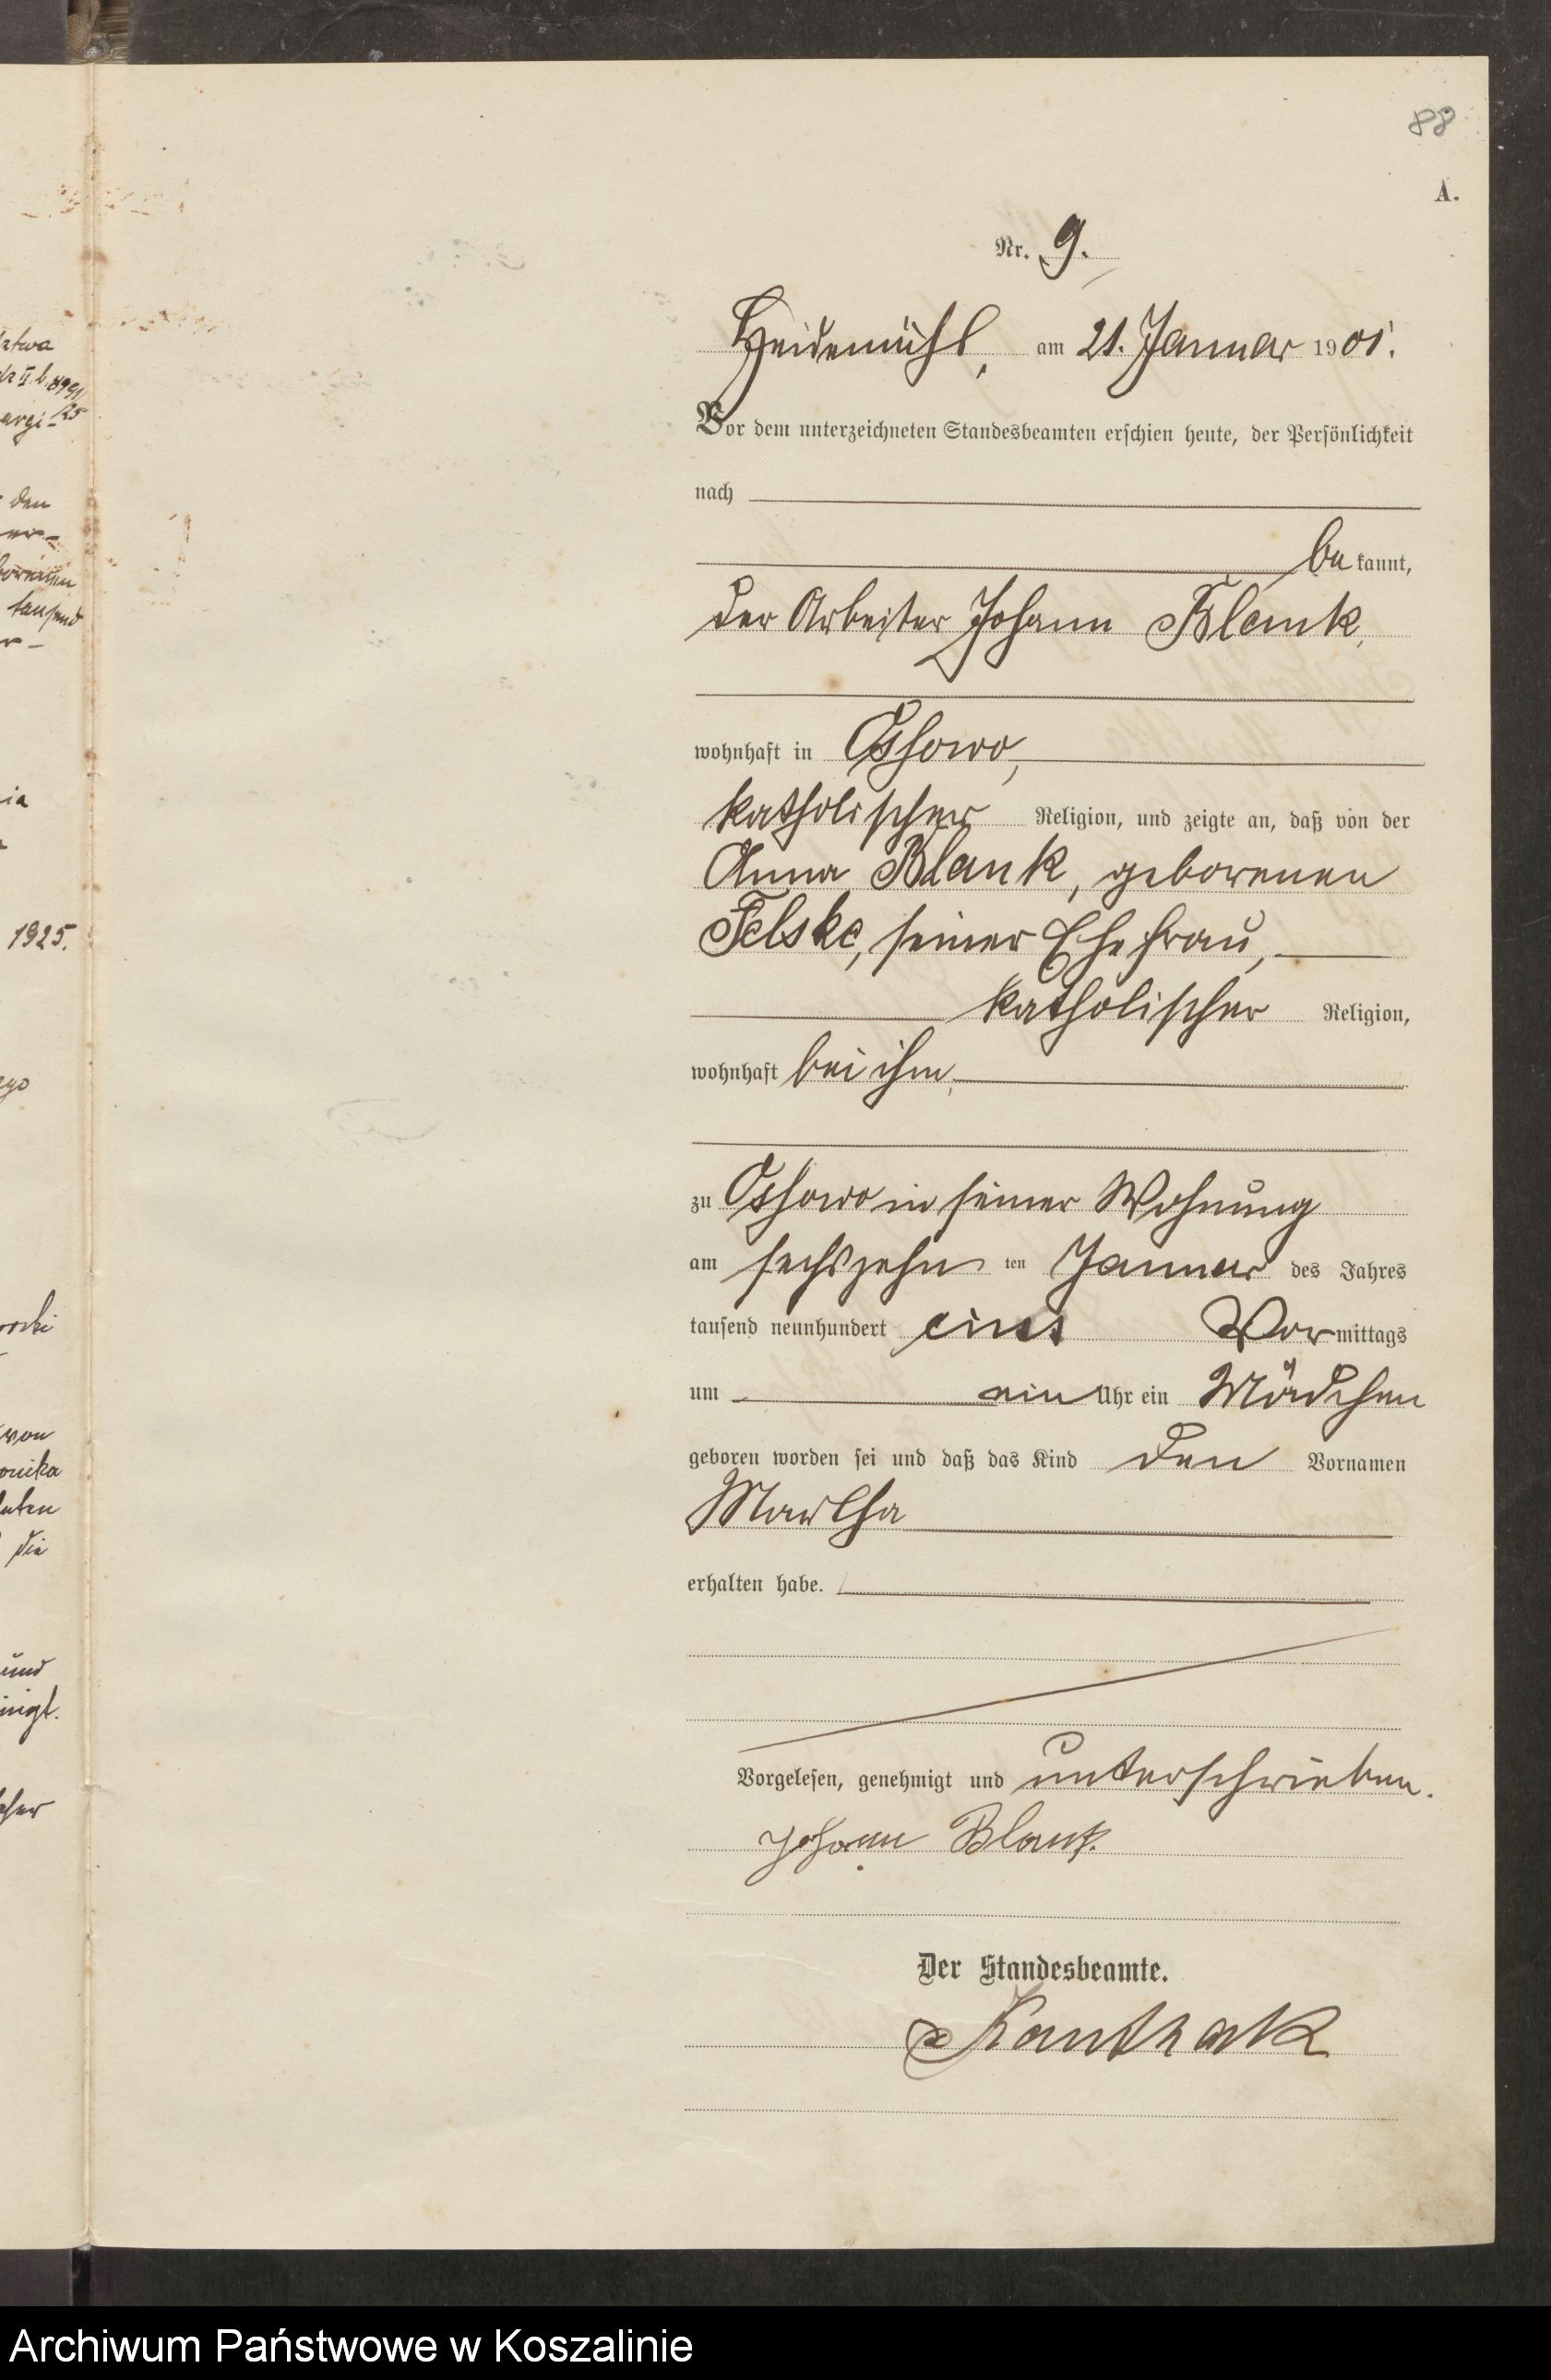 88
A.
Nr. 9.
Heidemühl, am 21. Januar 1901.
Vor dem unterzeichneten Standesbeamten erschien heute, der Persönlichkeit
nach
be kannt,
der Arbeiter Johann Blank,
wohnhaft in Ossowo,
katholischer Religion, und zeigte an, daß von der
Anna Blank, geborenen
Felske, seiner Ehefrau,
katholischer Religion,
wohnhaft bei ihm,
zu Ossowo in seiner Wohnung
am sechszehn ten Januar des Jahres
tausend neunhundert eins Vormittags
um ein Uhr ein Mädchen
geboren worden sei und daß das Kind den Vornamen
Martha
erhalten habe.
Vorgelesen, genehmigt und unterschrieben.
Johann Blank.
Der Standesbeamte.
Kanthak
den
tausend
1925.
von
und
Archiwum Państwowe w Koszalinie